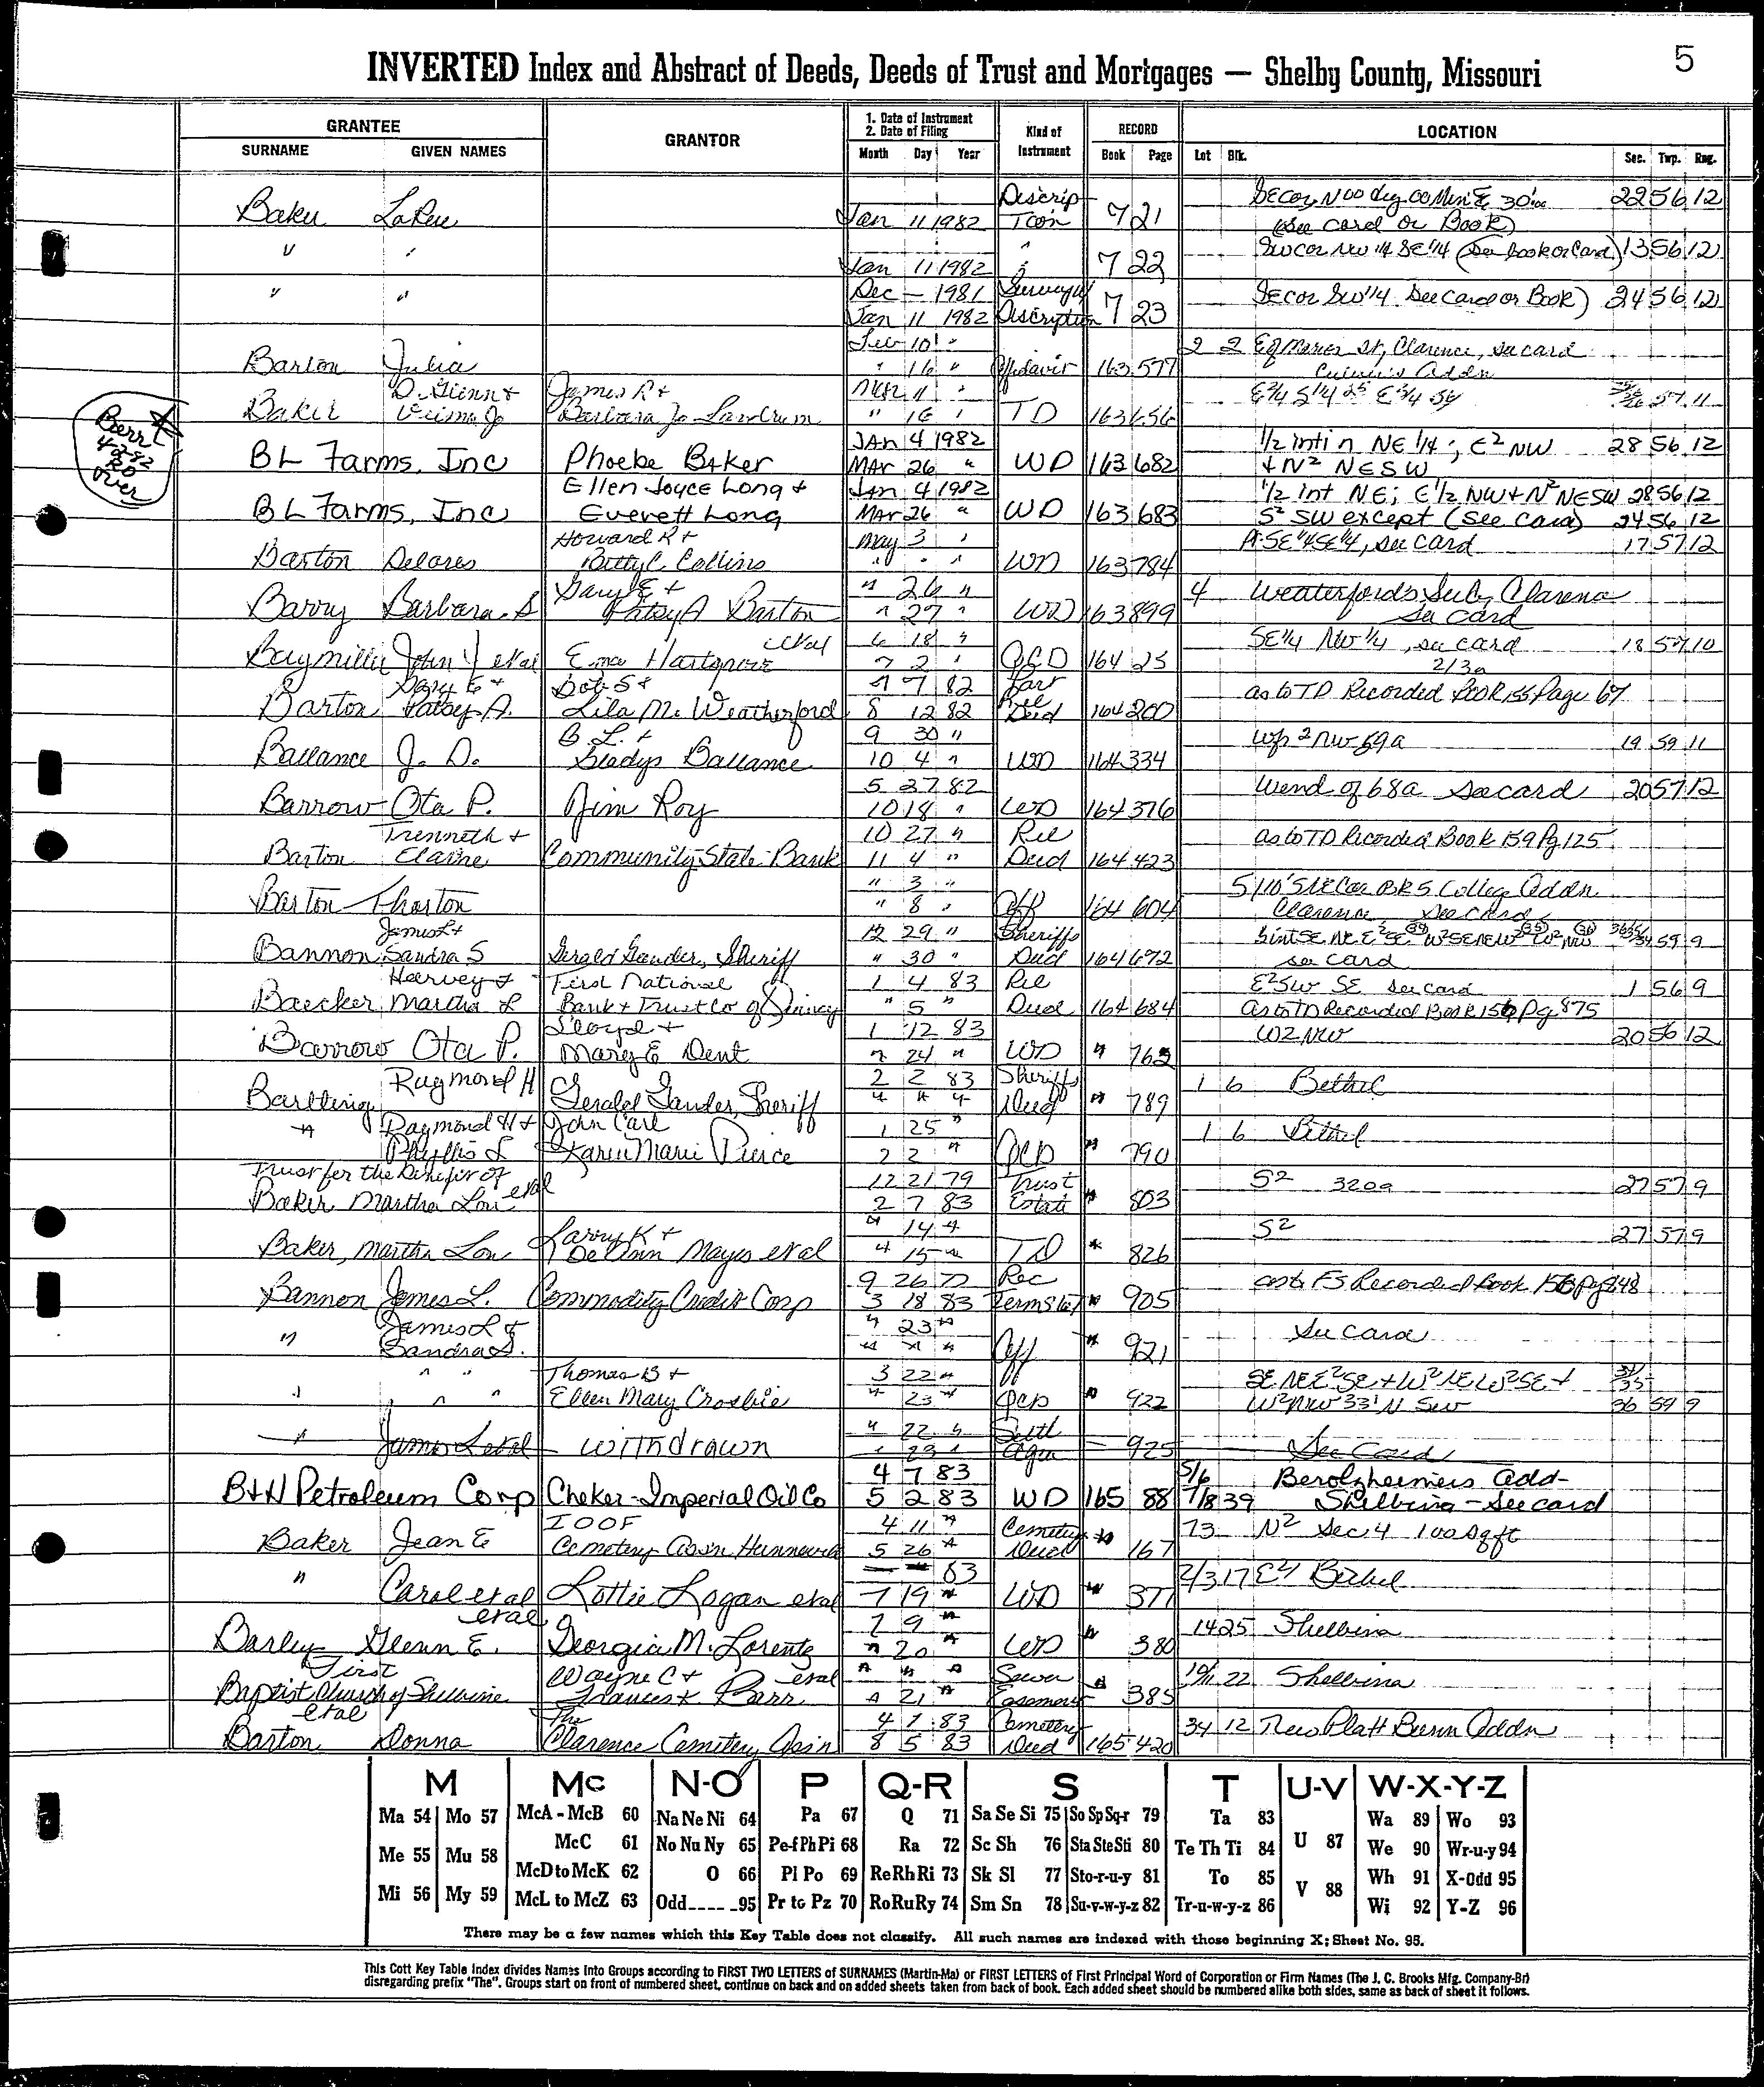 5
INVERTED Index and Abstract of Deeds, Deeds of Trust and Mortgages — Shelby County, Missouri
GRANTEE
SURNAME GIVEN NAMES
GRANTOR
1. Date of Instrument
2. Date of Filing
Month Day Year
Kind of Instrument
RECORD
Book Page
LOCATION
Lot Blk. Sec. Twp. Rng.
Baker Jan 11 1982 7 21 22 56 12
(See card or Book)
Jan 11 1982 7 22 SW cor NW 1/4 SE 1/4 (See book or Card) 13 56 12
Dec — 1981 Survey
Jan 11 1982 Discription 7 23 SE cor SW 1/4 See Card or Book) 24 56 12
Barton Julia 16 " Affidavit 163 577 2 2 Clarence, see card
Baker D. Glenn + James R + Barbara Jo Landrum " 16 TD 163 656 57 11
BL Farms, Inc Phoebe Baker JAN 4 1982 MAR 26 " WD 163 682 1/2 int in NE 1/4; E² NW + N² NESW 28 56 12
BL Farms, Inc Ellen Joyce Long + Everett Long JAN 4 1982 MAR 26 " WD 163 683 1/2 Int NE; E 1/2 NW + N² NESW 28 56 12
S² SW except (See Card) 24 56 12
Barton Delores Howard R + Betty C. Collins May 3 WD 163 784 Pt SE 1/4 SE 1/4, see card 17 57 12
Barry Barbara S Gary E + Patsy A Barton " 26 " " 27 " WD 163 899 4 Weatherfords Sub, Clarence see card
Baymiller John J etal Hartgrove etal 6 18 " 7 2 " QCD 164 25 SE 1/4 NW 1/4, see card 18 57 10
Barton Gary E + Patsy A. Bob S + Lila M. Weatherford 7 7 82 8 12 82 Part Rel Deed 164 200 as to TD Recorded Book 155 Page 67
Ballance J. D. B. L. + Gladys Ballance 9 30 " 10 4 " WD 164 334 19 59 11
Barrow Ota P. Jim Roy 5 27 82 10 18 " WD 164 376 W end of 68a See card 20 57 12
Barton Trenneth + Elaine Community State Bank 10 27 " 11 4 " Rel Deed 164 423 as to TD Recorded Book 159 Pg 125
Barton Tharton " 3 " " 8 " Aff 164 604 College Addn Clarence, see card
Bannon James L + Sandra S Gerald Gander, Sheriff 12 29 " " 30 " Sheriffs Deed 164 672 see card
Baecker Harvey + Martha L First National Bank + Trust Co of Quincy 1 4 83 " 5 " Rel Deed 164 684 E² SW SE see card 1 56 9
As to TD Recorded Book 156 Pg 875
Barrow Ota P. Lloyd + Mary E Dent 1 12 83 " 24 " WD " 762 W2 NW 20 56 12
Bartling Raymond H Gerald Gander, Sheriff 2 2 83 Sheriffs Deed " 789 1 6 Bethel
" Raymond H + Phyllis L John Carl + Karen Marie Pierce 1 25 " 2 2 " QCD " 790 1 6 Bethel
Trust for the Benefit of Baker Martha Lou etal 12 21 79 2 7 83 Trust Estate " 803 S² 320a 27 57 9
Baker, Martha Lou Larry K + DeAnn Mayes etal " 14 " " 15 " TD " 826 S² 27 57 9
Bannon James L. Commodity Credit Corp 9 26 77 3 18 83 " 905 as to FS Recorded Book 156 Pg 848
" James L + Sandra S. " 23 " Aff " 921 See Card
" " " Thomas B + Ellen Mary Crosbie 3 22 " " 23 " QCD " 922 SE NE E² SE + W² NE W² SE + W² NW 33' N SW 36 59 9
" James L etal withdrawn " 22 " " 23 " Settl Agre 925 See Card
B+H Petroleum Corp Cheker-Imperial Oil Co 4 7 83 5 2 83 WD 165 88 5/6 7/8 39 Berolzheimers Add- Shelbina - See card
Baker Jean E IOOF Cemetery Assn Hunnewell 4 11 " 5 26 " Cemetery Deed " 167 73 N² Sec 4 100 sq ft
" Carol etal Lottie Logan etal 83 7 19 " WD " 377 2/3 17 Bethel
Barley Glenn E. etal Georgia M. Lorentz 7 9 " " 20 " WD " 380 14 25 Shelbina
First Baptist Church of Shelbina etal Wayne C + Frances K Barr etal " 21 " Sewer Easement " 385 10/11 22 Shelbina
Barton Donna The Clarence Cemetery Assn 4 1 83 8 5 83 Cemetery Deed 165 420 34 12 New Platt Bunn Addn
M Mc N-O P Q-R S T U-V W-X-Y-Z
Ma 54 Mo 57 McA - McB 60 Na Ne Ni 64 Pa 67 Q 71 Sa Se Si 75 So Sp Sq-r 79 Ta 83 U 87 Wa 89 Wo 93
Me 55 Mu 58 McC 61 No Nu Ny 65 Pe-f Ph Pi 68 Ra 72 Sc Sh 76 Sta Ste Sti 80 Te Th Ti 84 We 90 Wr-u-y 94
McD to McK 62 O 66 Pl Po 69 Re Rh Ri 73 Sk Sl 77 Sto-r-u-y 81 To 85 V 88 Wh 91 X-Odd 95
Mi 56 My 59 McL to McZ 63 Odd____95 Pr to Pz 70 Ro Ru Ry 74 Sm Sn 78 Su-v-w-y-z 82 Tr-u-w-y-z 86 Wi 92 Y-Z 96
There may be a few names which this Key Table does not classify. All such names are indexed with those beginning X; Sheet No. 95.
This Cott Key Table Index divides Names into Groups according to FIRST TWO LETTERS of SURNAMES (Martin-Ma) or FIRST LETTERS of First Principal Word of Corporation or Firm Names (The J. C. Brooks Mfg. Company-Br)
disregarding prefix "The". Groups start on front of numbered sheet, continue on back and on added sheets taken from back of book. Each added sheet should be numbered alike both sides, same as back of sheet it follows.